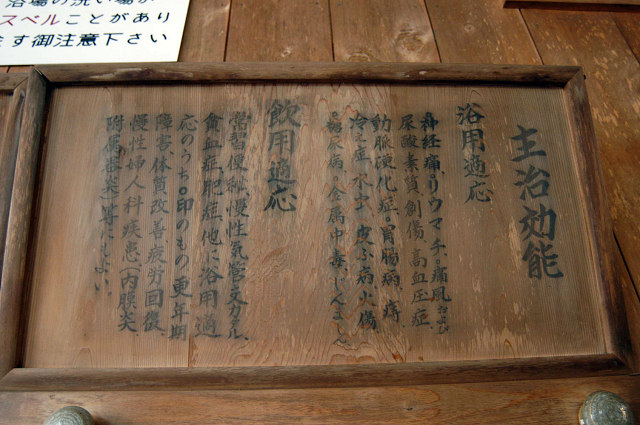 浴場の洗い場が
スベルことがあり
ます御注意下さい
主治効能
浴用適応
神経痛、リウマチ、痛風および
尿酸素質、創傷、高血圧症、
動脈硬化症、胃腸病、痔、
冷え症、水虫、皮ふ病、火傷
糖尿病、金属中毒、じんましん
飲用適応
常習便秘、慢性気管支カタル、
貧血症、肥痘、他に浴用適
応のうち○印のもの、更年期
障害、体質改善、疲労回復、
慢性婦人科疾患(内膜炎、
附属器炎)等にもよい。